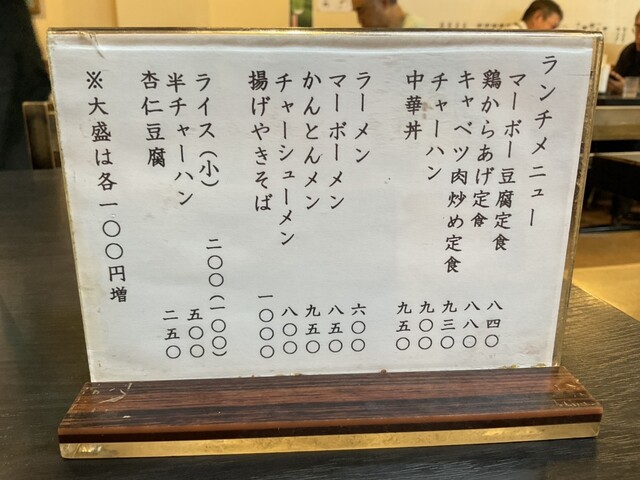 ランチメニュー
マーボー豆腐定食 八四〇
鶏からあげ定食 八八〇
キャベツ肉炒め定食 九三〇
チャーハン 九〇〇
中華丼 九五〇
ラーメン 六〇〇
マーボーメン 八五〇
かんとんメン 九五〇
チャーシューメン 八〇〇
揚げやきそば 一〇〇〇
ライス(小) 二〇〇(一〇〇)
半チャーハン 五〇〇
杏仁豆腐 二五〇
※大盛は各一〇〇円増